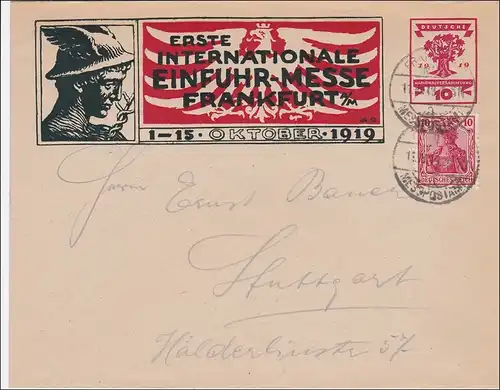 ERSTE
INTERNATIONALE
EINFUHR-MESSE
FRANKFURT A/M
1-15 · OKTOBER · 1919
DEUTSCHE
1919
NATIONALVERSAMMLUNG
10
10
DEUTSCHES REICH
MESSPOSTAMT
MESSPOSTAMT
Herrn Ernst Bauer
Stuttgart
Hölderlinstr 57